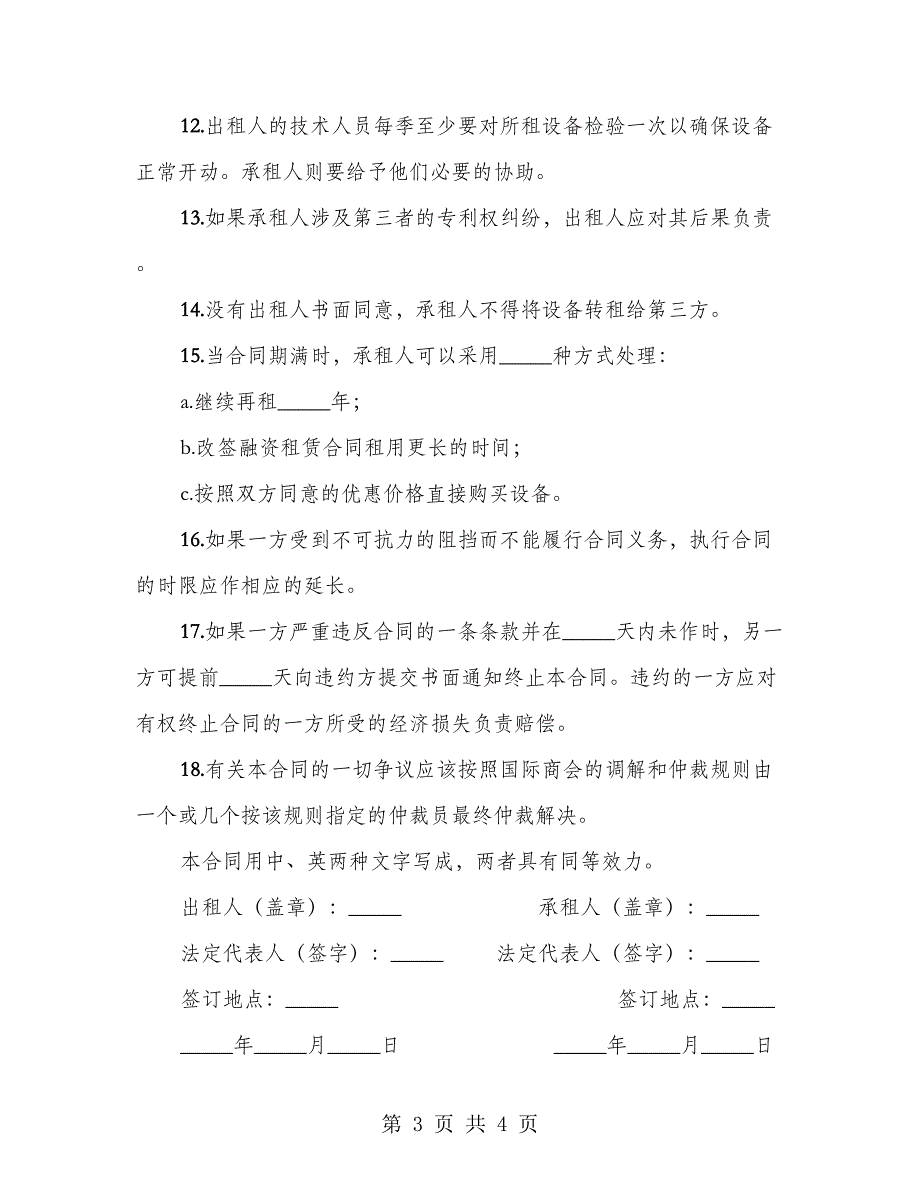 12.出租人的技术人员每季至少要对所租设备检验一次以确保设备
正常开动。承租人则要给予他们必要的协助。
13.如果承租人涉及第三者的专利权纠纷，出租人应对其后果负责
。
14.没有出租人书面同意，承租人不得将设备转租给第三方。
15.当合同期满时，承租人可以采用_____种方式处理：
a.继续再租_____年；
b.改签融资租赁合同租用更长的时间；
c.按照双方同意的优惠价格直接购买设备。
16.如果一方受到不可抗力的阻挡而不能履行合同义务，执行合同
的时限应作相应的延长。
17.如果一方严重违反合同的一条条款并在_____天内未作时，另一
方可提前_____天向违约方提交书面通知终止本合同。违约的一方应对
有权终止合同的一方所受的经济损失负责赔偿。
18.有关本合同的一切争议应该按照国际商会的调解和仲裁规则由
一个或几个按该规则指定的仲裁员最终仲裁解决。
本合同用中、英两种文字写成，两者具有同等效力。
出租人（盖章）：_____ 承租人（盖章）：_____
法定代表人（签字）：_____ 法定代表人（签字）：_____
签订地点：_____ 签订地点：_____
_____年_____月_____日 _____年_____月_____日
第 3 页 共 4 页